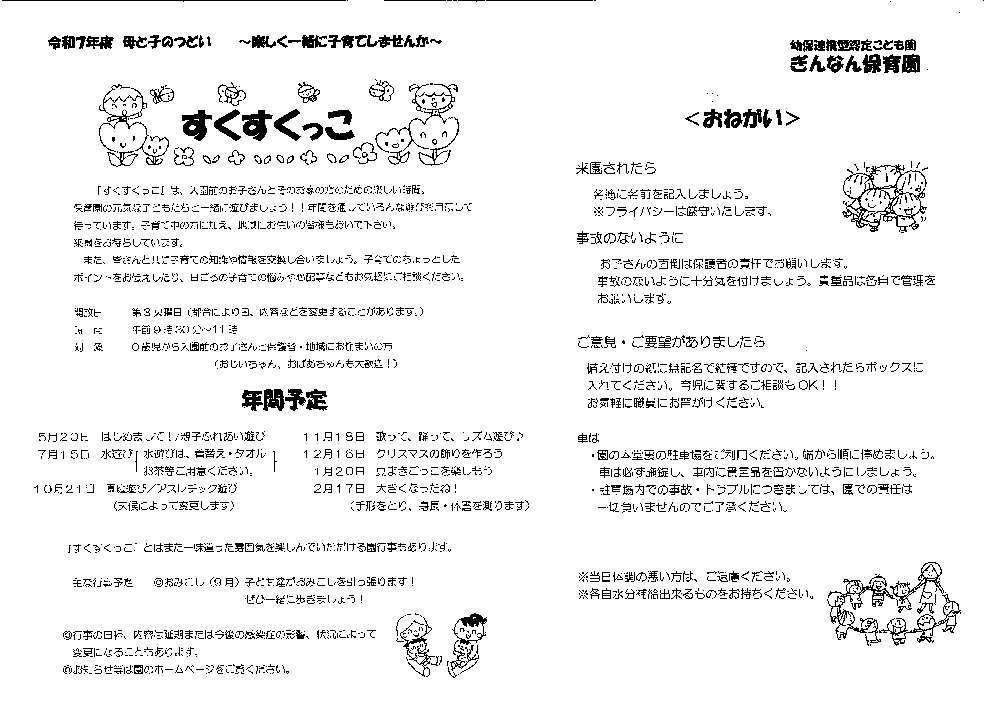 令和7年度 母と子のつどい ～楽しく一緒に子育てしませんか～
すくすくっこ
「すくすくっこ」は、入園前のお子さんとそのお家の方のための楽しい時間。
保育園の元気な子どもたちと一緒に遊びましょう！！年間を通していろんな遊びを用意して
待っています。子育て中の方に加え、地域にお住いの皆様もおいで下さい。
来園をお待ちしています。
また、皆さんと共に子育ての知識や情報を交換し合いましょう。子育てのちょっとした
ポイントをお伝えしたり、日ごろの子育ての悩みや心配事などもお気軽にご相談ください。
開放日 第3火曜日（都合により日、内容などを変更することがあります。）
時 間 午前9時30分～11時
対 象 0歳児から入園前のお子さんと保護者・地域にお住まいの方
（おじいちゃん、おばあちゃんも大歓迎！）
年間予定
5月20日 はじめまして！/親子ふれあい遊び
7月15日 水遊び 水遊びは、着替え・タオル
お茶等ご用意ください。
10月21日 園庭遊び/アスレチック遊び
（天候によって変更します）
11月18日 歌って、踊って、リズム遊び♪
12月16日 クリスマスの飾りを作ろう
1月20日 豆まきごっこを楽しもう
2月17日 大きくなったね！
（手形をとり、身長・体重を測ります）
「すくすくっこ」とはまた一味違った雰囲気を楽しんでいただける園行事もあります。
主な行事予定 ◎おみこし（9月）子ども達がおみこしを引っ張ります！
ぜひ一緒に歩きましょう！
◎行事の日程、内容は延期または今後の感染症の影響、状況によって
変更になることもあります。
◎お知らせ等は園のホームページをご覧ください。
幼保連携型認定こども園
ぎんなん保育園
＜おねがい＞
来園されたら
名簿に名前を記入しましょう。
※プライバシーは厳守いたします。
事故のないように
お子さんの面倒は保護者の責任でお願いします。
事故のないように十分気を付けましょう。貴重品は各自で管理を
お願いします。
ご意見・ご要望がありましたら
備え付けの紙に無記名で結構ですので、記入されたらボックスに
入れてください。育児に関するご相談もOK！！
お気軽に職員にお声がけください。
車は
・園のお堂裏の駐車場をご利用ください。端から順に停めましょう。
車は必ず施錠し、車内に貴重品を置かないようにしましょう。
・駐車場内での事故・トラブルにつきましては、園での責任は
一切負いませんのでご了承ください。
※当日体調の悪い方は、ご遠慮ください。
※各自水分補給出来るものをお持ちください。